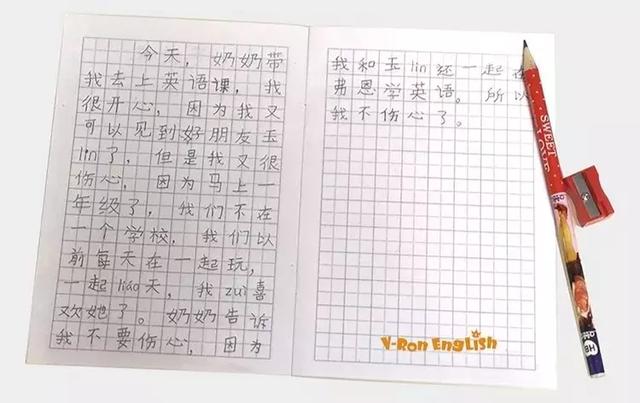 今天，奶奶带
我去上英语课，我
很开心，因为我又
可以见到好朋友玉
lin了，但是我又很
伤心，因为马上一
年级了，我们不在
一个学校，我们以
前每天在一起玩，
一起liáo天，我zuì喜
欢她了。奶奶告诉
我不要伤心，因为
我和玉lin还一起在
弗恩学英语。所以
我不伤心了。
V-Ron English
SWEET
HB